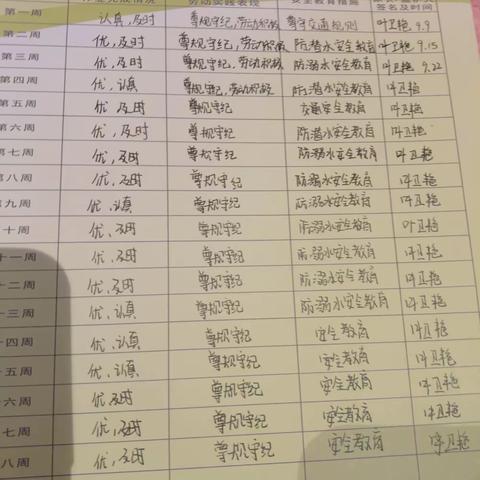 劳动实践表现 安全教育措施
签名及时间
第一周 认真,及时 尊规守纪,劳动积极 尊守交通规则 叶卫艳 9.9
第二周 优,及时 尊规守纪,劳动积极 防潜水安全教育 叶卫艳 9.15
第三周 优,及时 尊规守纪,劳动积极 防溺水安全教育 叶卫艳 9.22
第四周 优,认真 尊规守纪,劳动积极 防潜水安全教育 叶卫艳
第五周 优,及时 尊规守纪 交通安全教育 叶卫艳
第六周 优,及时 尊规守纪 防潜水安全教育 叶卫艳
第七周 优,及时 尊规守纪 防溺水安全教育 叶卫艳
第八周 优,及时 尊规守纪 防溺水安全教育 叶卫艳
第九周 优,认真 尊规守纪 防溺水安全教育 叶卫艳
十周 优,及时 尊规守纪 防溺水安全教育 叶卫艳
十一周 优,及时 尊规守纪 防溺水安全教育 叶卫艳
十二周 优,及时 尊规守纪 防溺水安全教育 叶卫艳
十三周 优,认真 尊规守纪 防溺水安全教育 叶卫艳
十四周 优,认真 尊规守纪 安全教育 叶卫艳
十五周 优,认真 尊规守纪 安全教育 叶卫艳
十六周 优,及时 尊规守纪 安全教育 叶卫艳
七周 优,及时 尊规守纪 安全教育 叶卫艳
八周 优,及时 尊规守纪 安全教育 叶卫艳